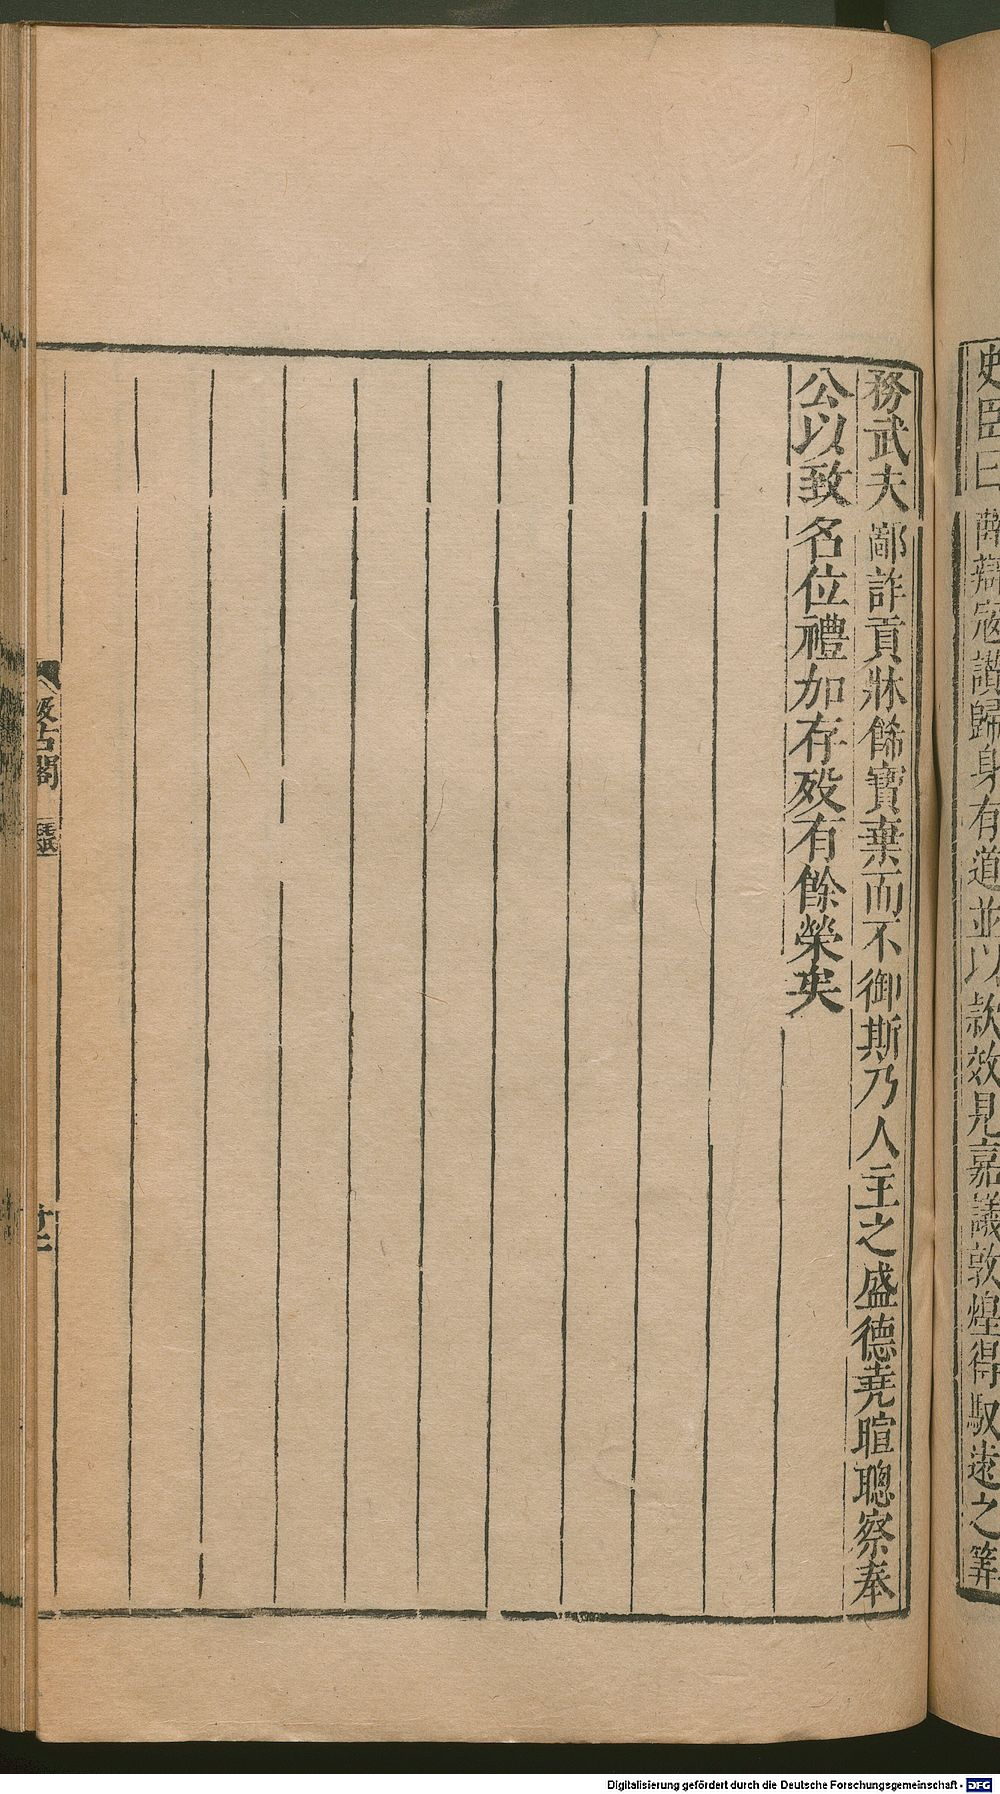 史臣曰薛辯寇讚歸身有道並以款效見嘉議敦煌得馭遠之筭
務武夫鄙詐貢牀餙寶棄而不御斯乃人主之盛德堯暄聰察奉
公以致名位禮加存歿有餘榮矣
汲古閣
Digitalisierung gefördert durch die Deutsche Forschungsgemeinschaft - DFG